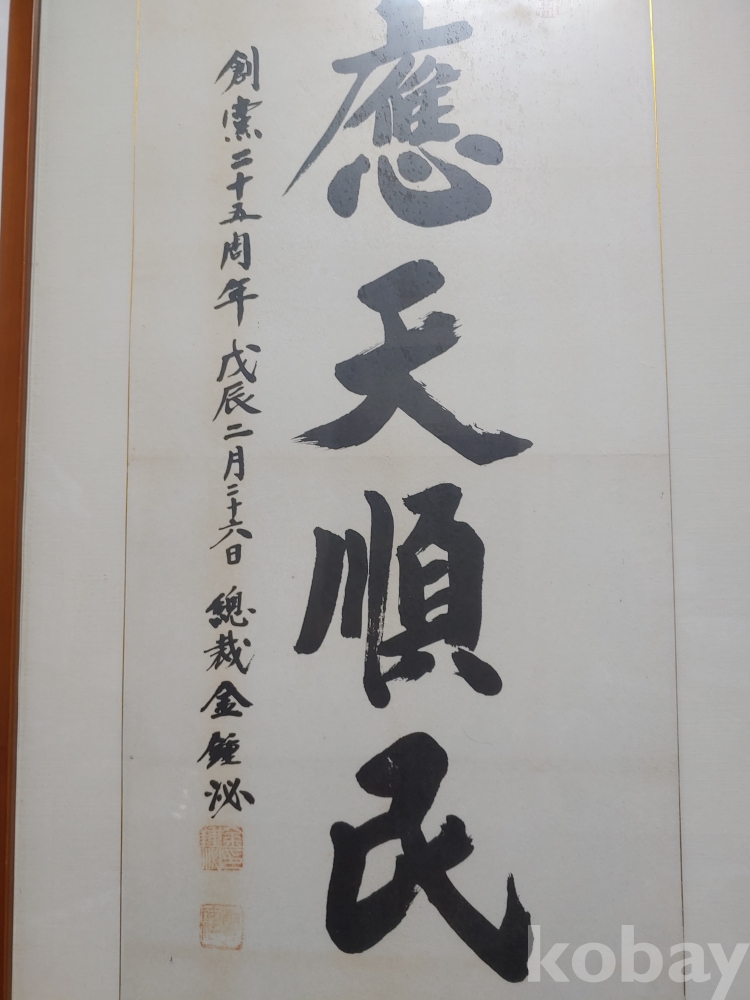 應天順民
創黨二十五周年 戊辰二月二十六日 總裁金鍾泌
kobay